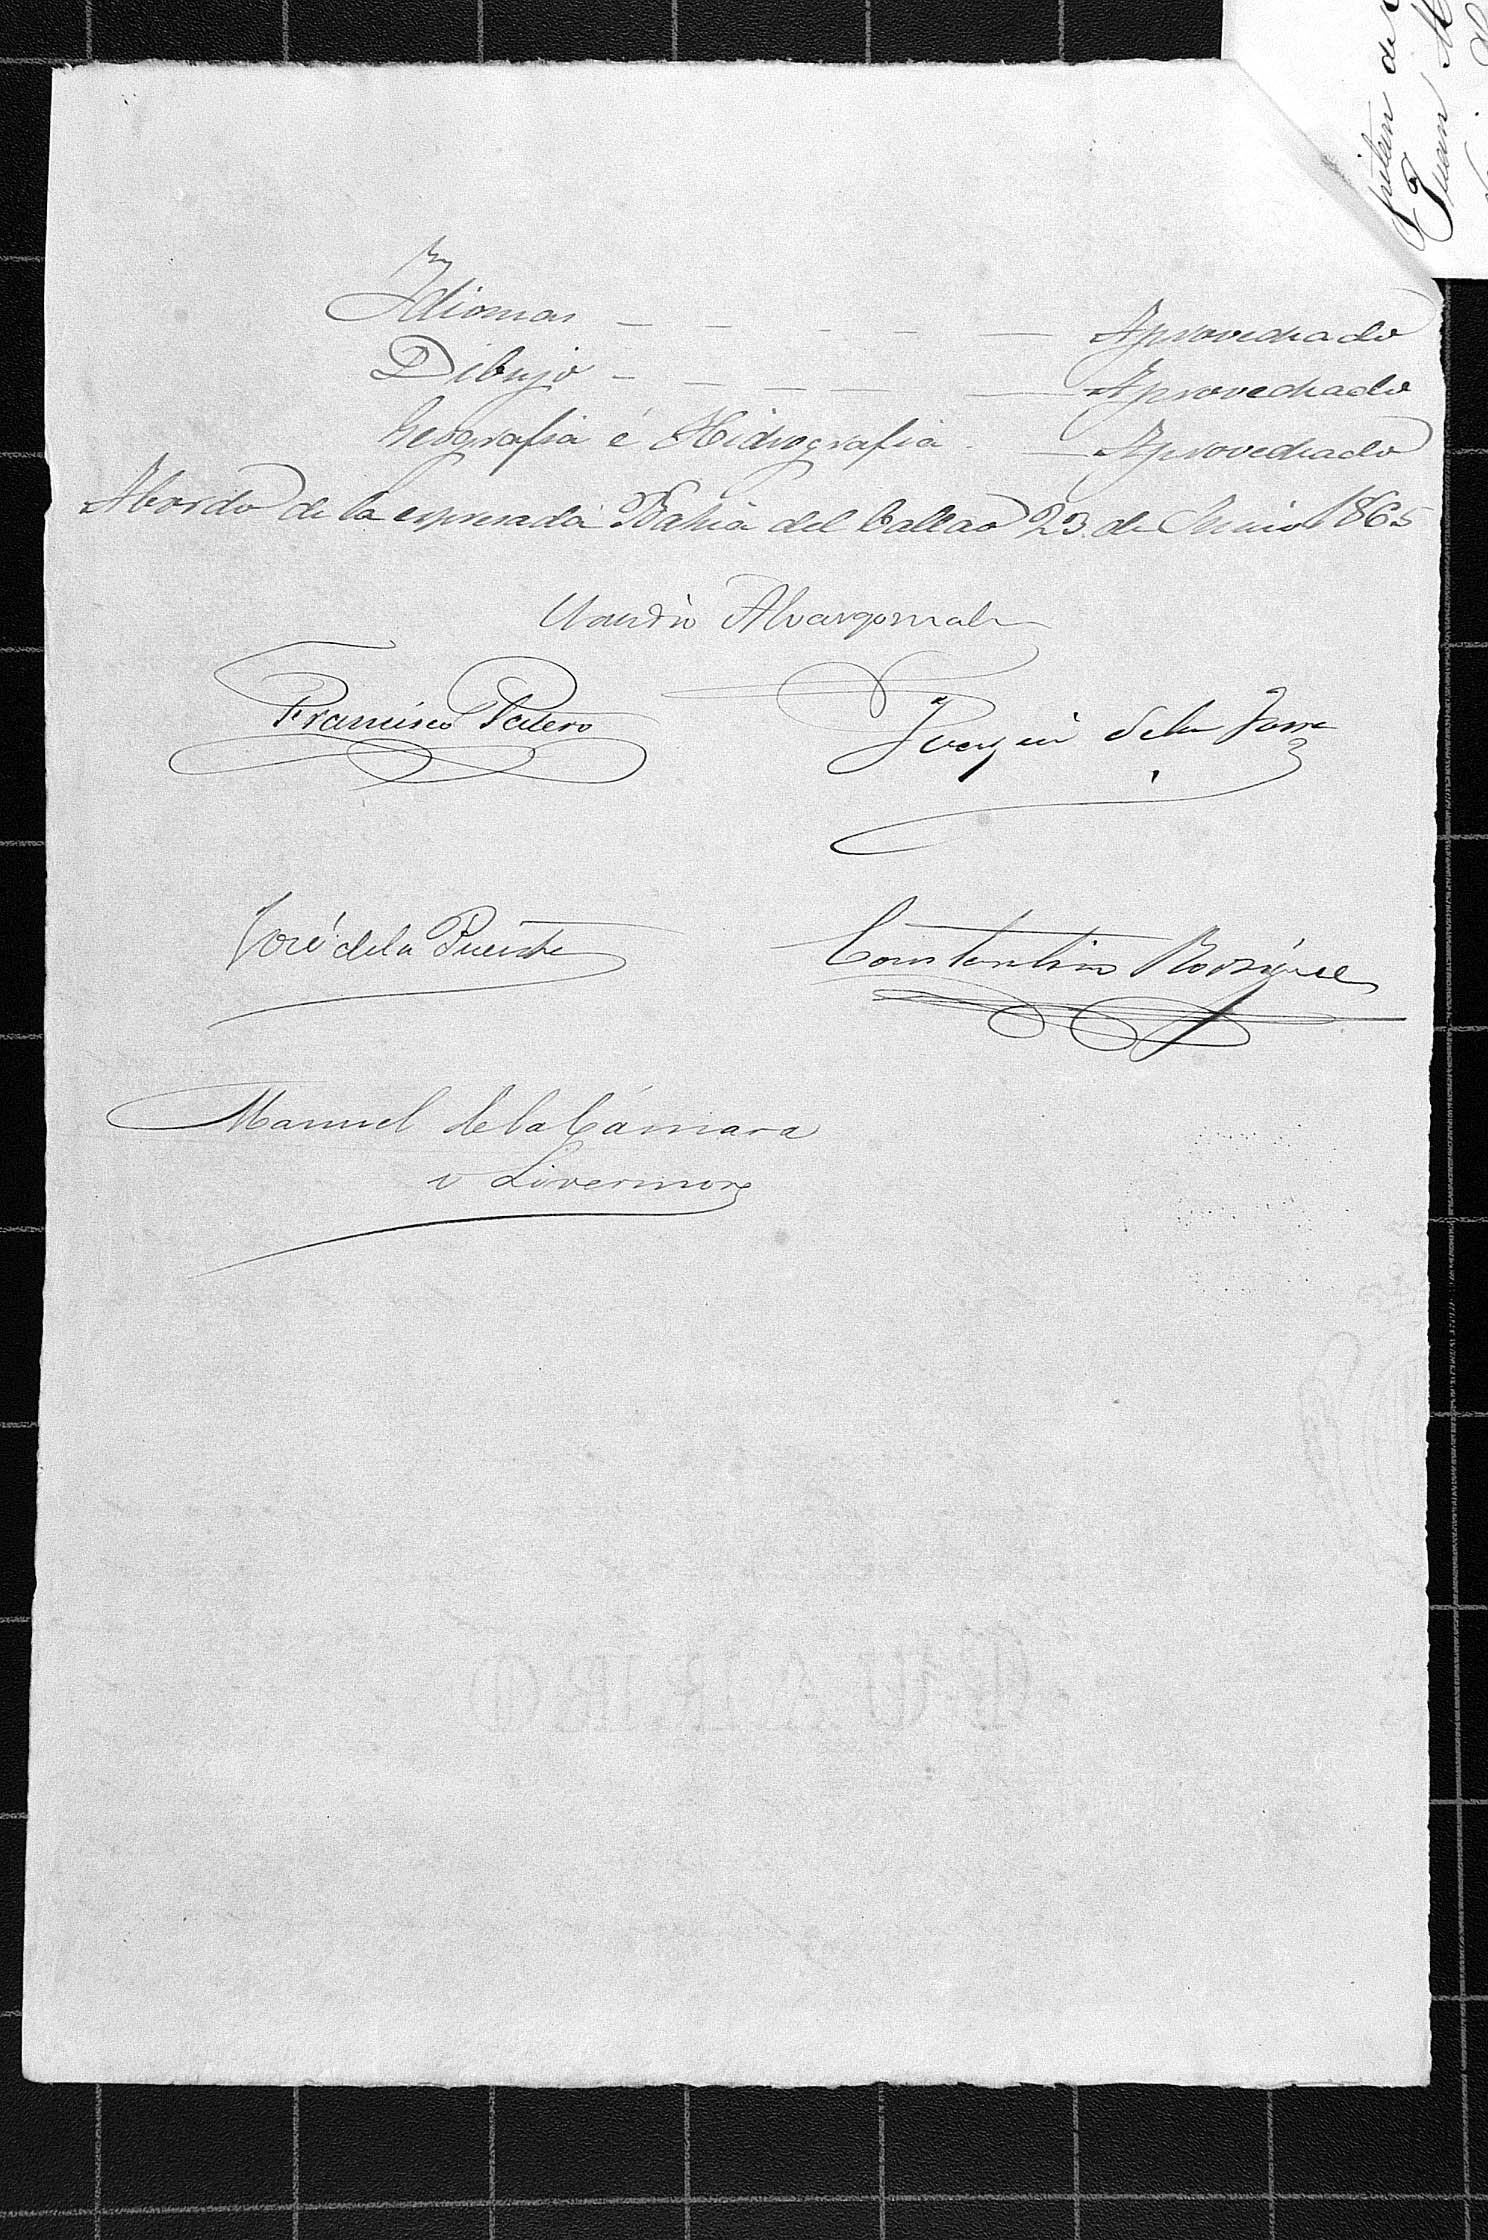 Idiomas - - - - - Aprovechado
Dibujo - - - - - Aprovechado
Geografia é Hidrografia - - Aprovechado
Abordo de la espresada Bahia del Callao 23 de Junio 1865
Claudio Alvargonzalez
Francisco Patero
Joaquin de la Torre
José de la Puente
Constantino Rodriguez
Manuel de la Cámara
y Livermore
Juan
CUARRO